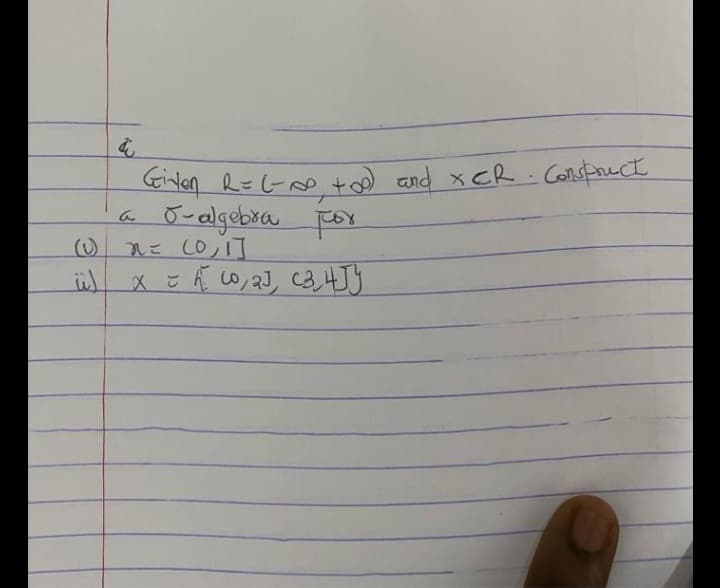 Given R = (-∞, +∞) and x ⊂ R. Construct
a σ-algebra for
(i) x = (0,1]
ii) x = { (0,2], (3,4] }